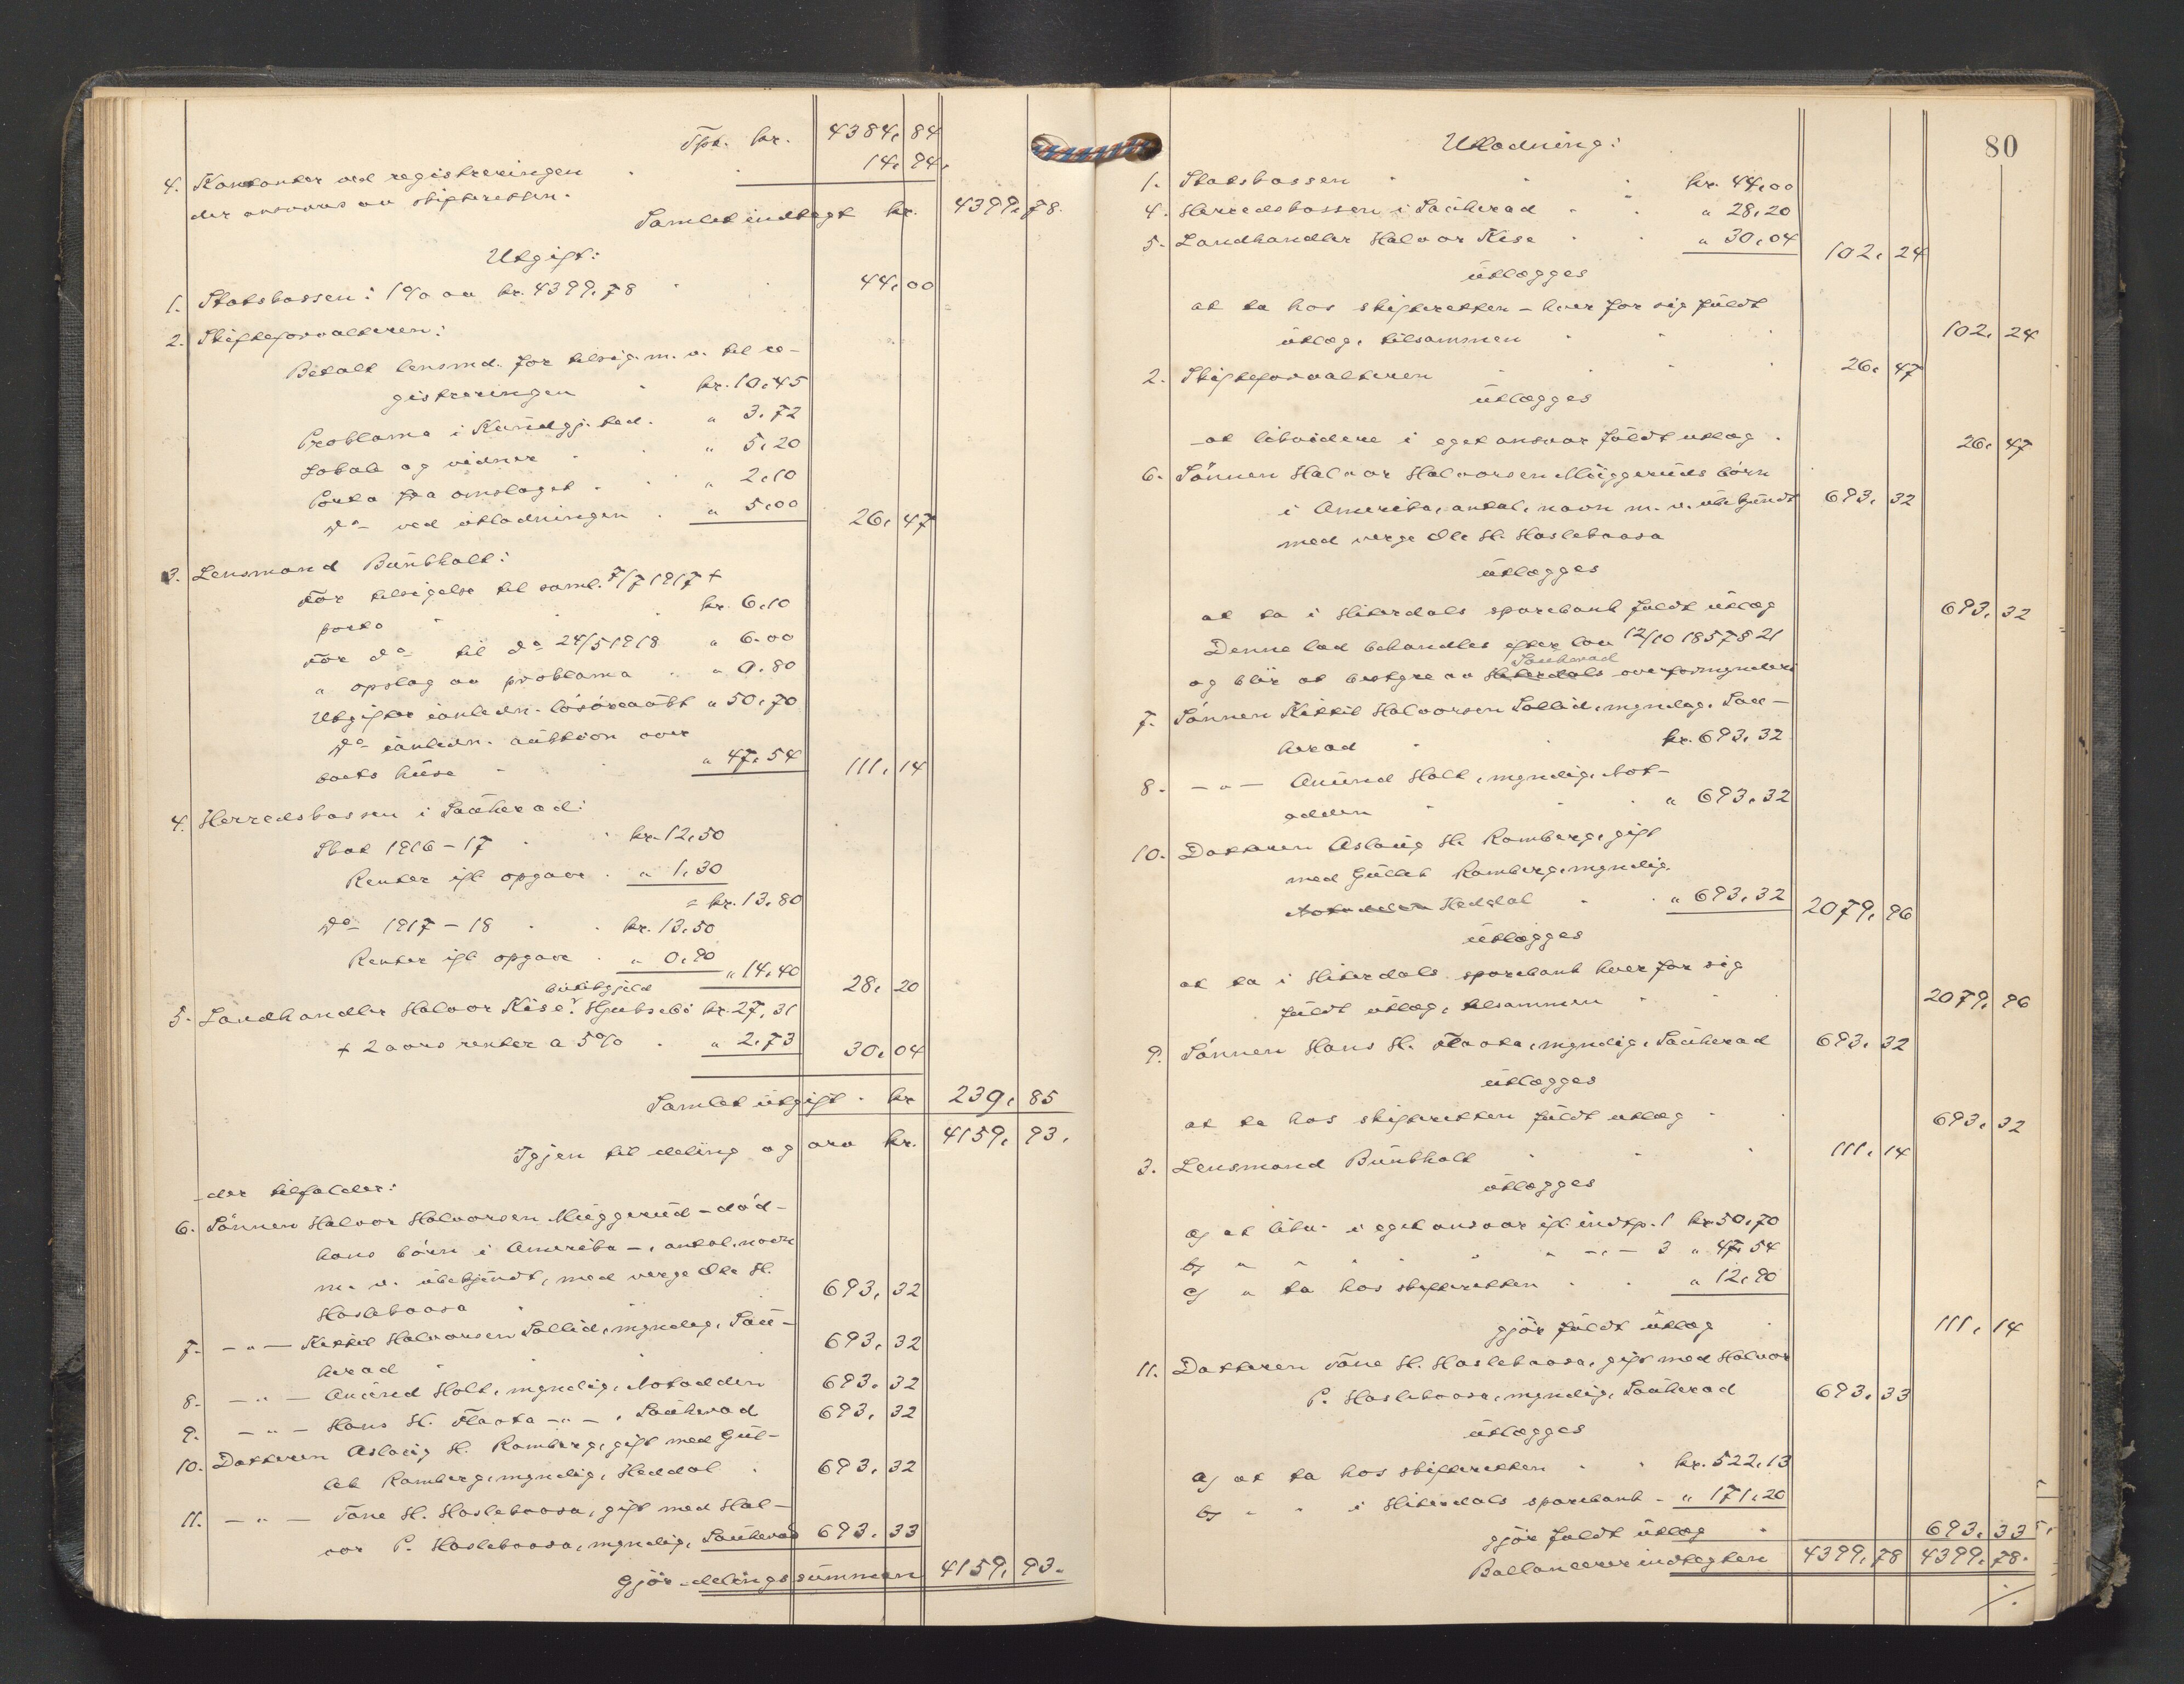 Tpt. kr. 4384,84
4. Kontanter ved registreringen 14,94.
der ansvares av skifteretten.
Samlet indtægt kr. 4399,78.
Utgift:
1. Statskassen: 1% av kr. 4399,78 44,00
2. Skifteforvalteren:
Betalt lensmd. for tilsig. m. v. til re-
gistreringen kr. 10,45
Proklama i Kundgj. tid. " 3.72
Lokale og vidner " 5,20
Porto fra omslaget " 2,10
Do ved utlodningen " 5,00 26,47
3. Lensmand Bunkholt:
For tilsigelse til saml. 7/7 1917 +
porto kr. 6,10
For do til do 24/5 1918 " 6.00
" opslag av proklama " 0.80
Utgifter i anledn. løsøreaukt " 50,70
Do i anledn. auktion over
boets huse " 47,54 111,14
4. Herredskassen i Sauherad:
Skat 1916-17 kr. 12,50
Renter ifl. opgave " 1,30
= kr. 13,80
Do 1917-18 kr. 13,50
Renter ifl. opgave " 0,90 " 14,40 28,20
butikgjæld
5. Landhandler Halvor Kise. Hjuksebø kr. 27,31
+ 2 aars renter a 5% " 2,73 30,04
Samlet utgift kr 239,85
Igjen til deling og arv kr. 4159,93.
der tilfalder:
6. Sønnen Halvor Halvorsen Muggerud - død -
hans børn i Amerika -, antal, navn
m. v. ubekjendt, med verge Ole H.
Haslekaasa 693,32
7. - " - Kittil Halvorsen Sollid, myndig, Sau-
herad 693,32
8. - " - Amund Holt, myndig, Notodden 693,32
9. - " - Hans H. Flaata - " -, Sauherad 693,32
10. Datteren Aslaug H. Ramberg, gift med Gul-
lek Ramberg, myndig, Heddal 693,32
11. - " - Tone H. Haslekaasa, gift med Hal-
vor P. Haslekaasa, myndig, Sauherad 693,33
Gjør delingssummen 4159,93.
80
Utlodning:
1. Statskassen kr. 44,00
4. Herredskassen i Sauherad " 28,20
5. Landhandler Halvor Kise " 30,04 102,24
utlægges
at ta hos skifteretten - hver for sig fuldt
utlæg, tilsammen 102,24
2. Skifteforvalteren 26,47
utlægges
at likvidere i eget ansvar fuldt utlæg. 26,47
6. Sønnen Halvor Halvorsen Muggeruds børn
i Amerika, antal, navn m. v. ubekjendt 693,32
med verge Ole H. Haslekaasa
utlægges
at ta i Hiterdals sparebank fuldt utlæg 693,32
Denne lod behandles efter lov 12/10 1857 § 21
Sauherad
og blir at bestyre av Hiterdals overformynderi
7. Sønnen Kittil Halvorsen Sollid, myndig, Sau-
herad kr. 693,32
8. - " - Amund Holt, myndig, Not-
odden " 693,32
10. Datteren Aslaug H. Ramberg, gift
med Gullek Ramberg, myndig,
Notodden Heddal " 693,32 2079,96
utlægges
at ta i Hiterdals sparebank hver for sig
fuldt utlæg, tilsammen 2079,96
9. Sønnen Hans H. Flaata, myndig, Sauherad 693,32
utlægges
at ta hos skifteretten fuldt utlæg 693,32
3. Lensmand Bunkholt 111,14
utlægges
a) at likv. i eget ansvar ifl. indtp. 1 kr. 50,70
b) " " " " " - " - 3 " 47,54
c) " ta hos skifteretten " 12,90
gjør fuldt utlæg 111,14
11. Datteren Tone H. Haslekaasa, gift med Halvor
P. Haslekaasa, myndig, Sauherad 693,33
utlægges
a) at ta hos skifteretten kr. 522,13
b) " " i Hiterdals sparebank " 171,20
gjør fuldt utlæg 693,33
Ballancerer indtægten 4399,78 4399,78.